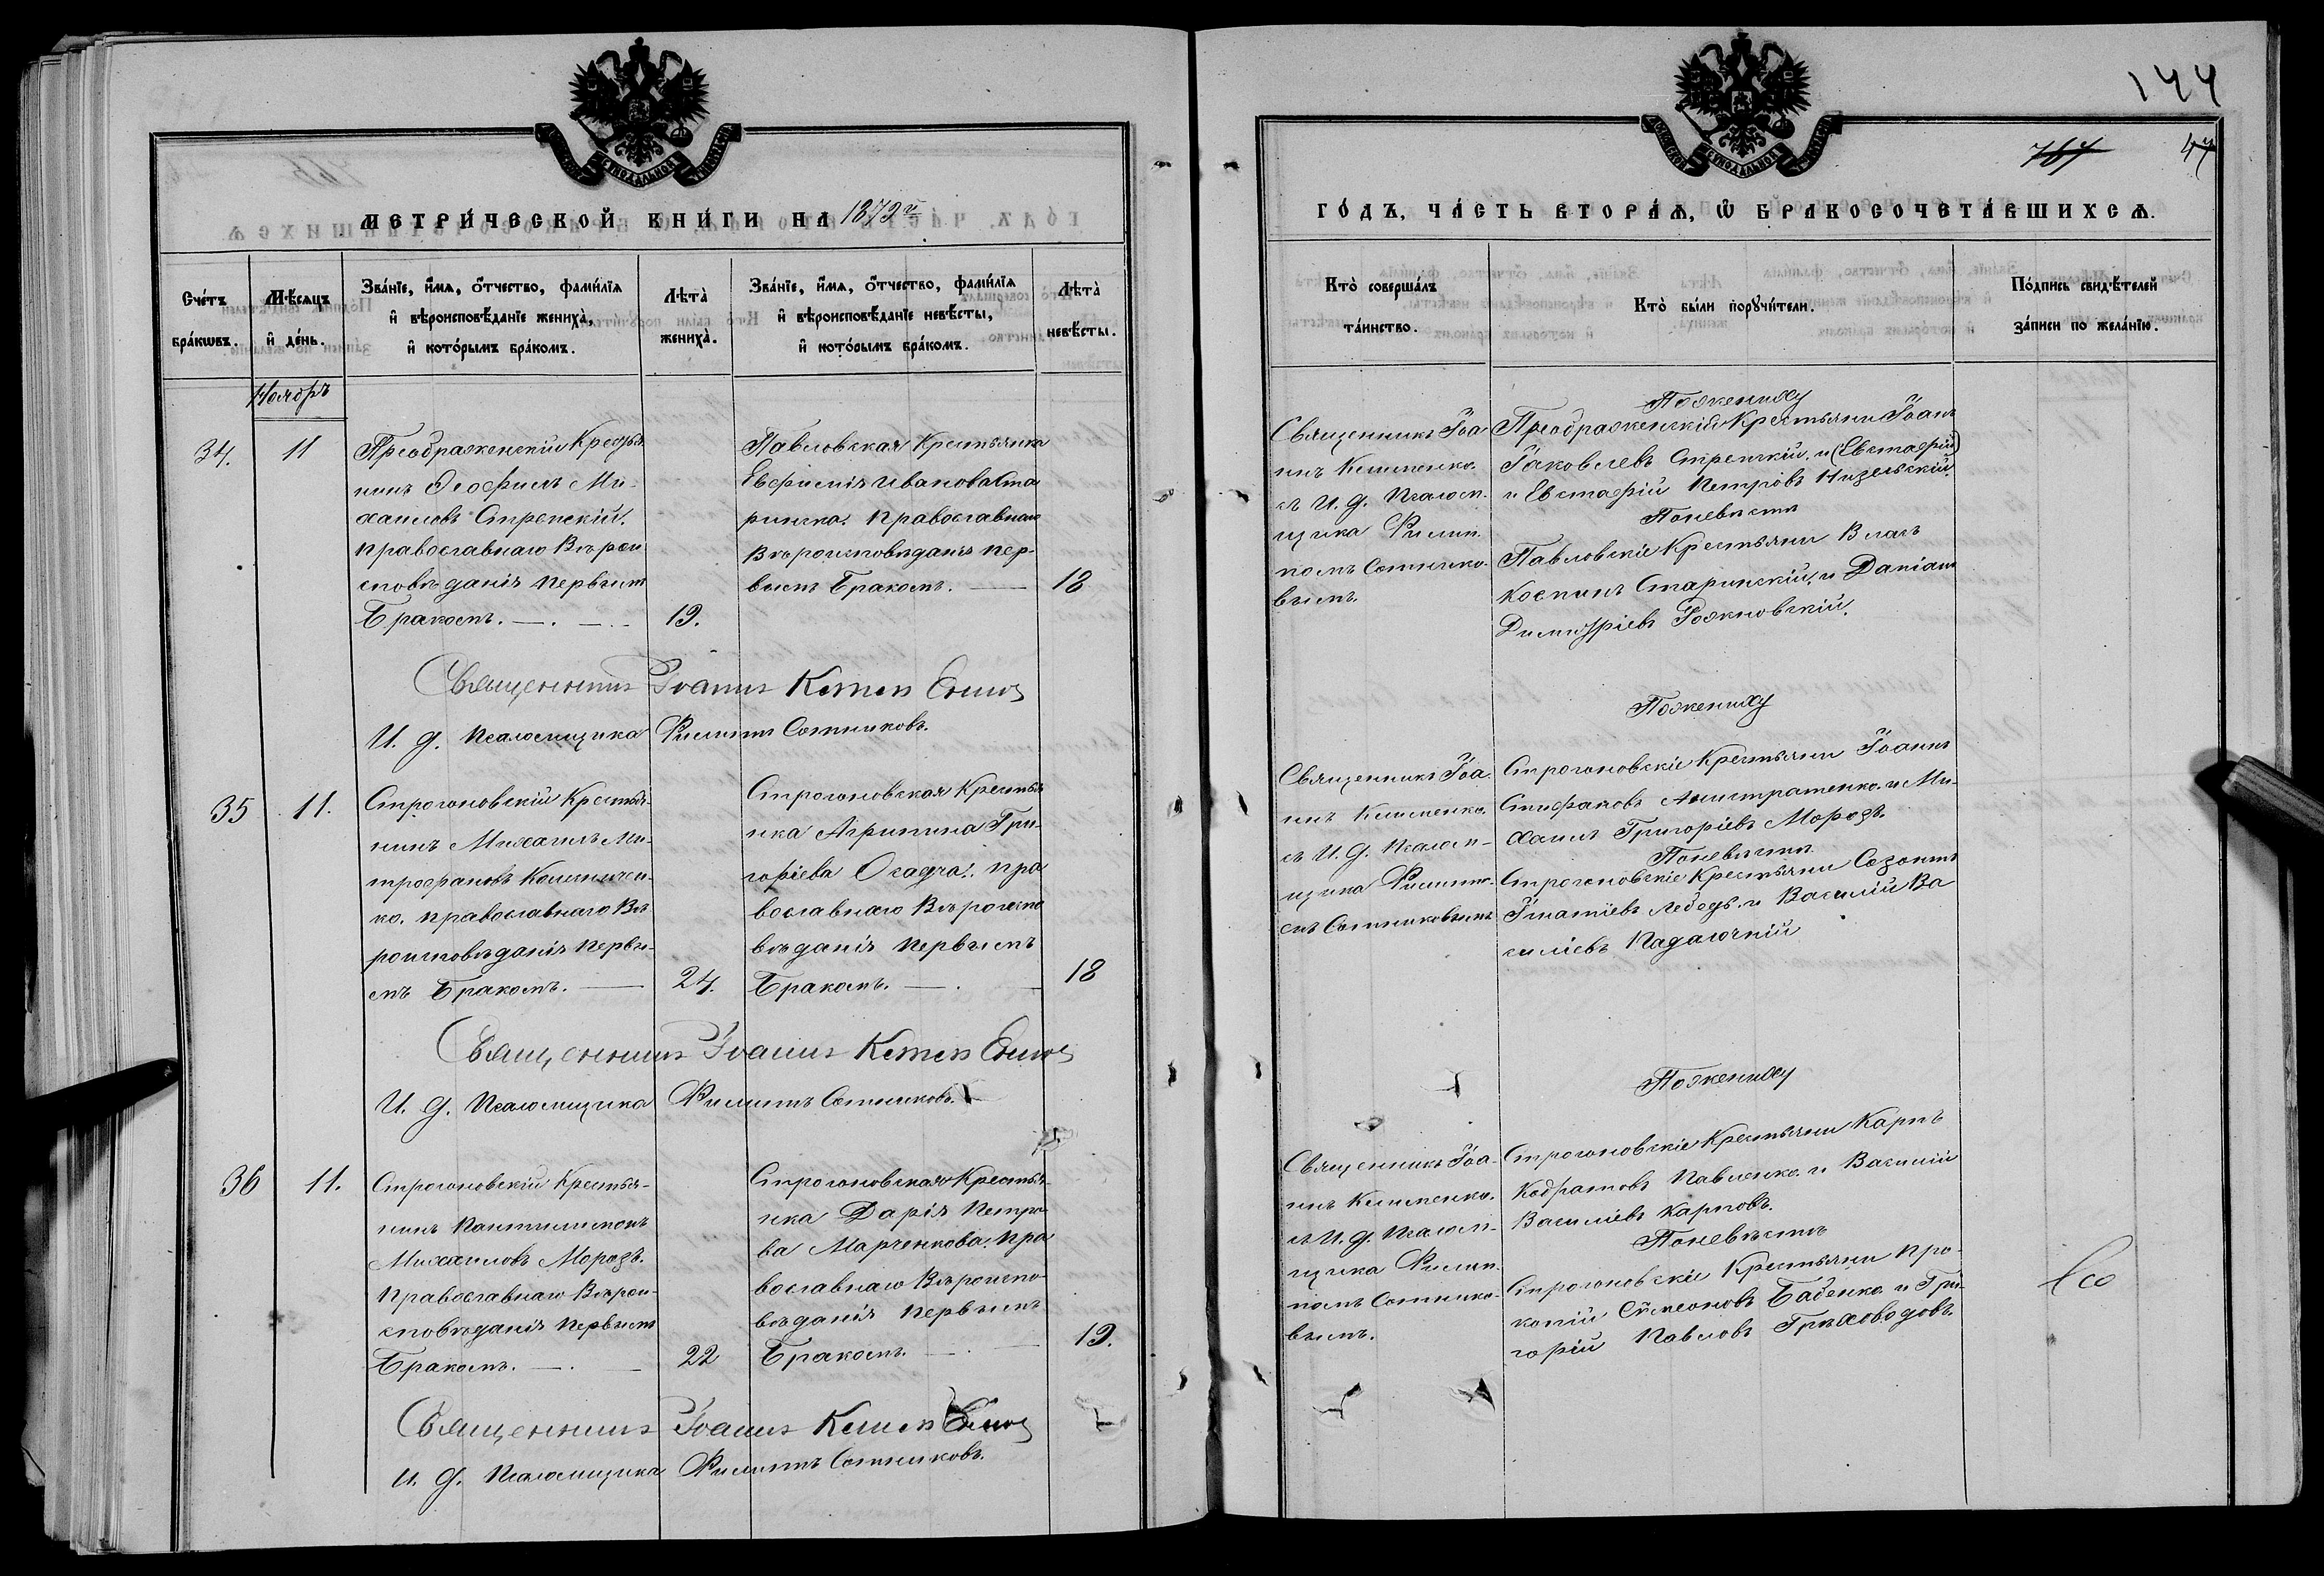 144
767 47
МЕТРИ́ЧЕСКОЙ КНИ́ГИ НА 1872й
ГО́ДЪ, ЧА́СТЬ ВТОРА́Ѧ, Ѡ҆ БРАКОСОЧЕТА́ВШИХСѦ.
Сче́тъ бра́кѡвъ.
Мѣ́сяцъ и҆ де́нь.
Зва́нїе, и҆́мѧ, ѻ҆́тчество, фами́лїѧ
и҆ вѣроисповѣ́данїе жениха̀,
и҆ кото́рымъ бра́комъ.
Лѣта̀ жениха̀.
Зва́нїе, и҆́мѧ, ѻ҆́тчество, фами́лїѧ
и҆ вѣроисповѣ́данїе невѣ́сты,
и҆ кото́рымъ бра́комъ.
Лѣта̀ невѣ́сты.
Кто̀ соверша́лъ та́инство.
Кто̀ бы́ли порꙋчи́тели.
По́дпись свидѣ́телей за́писи по жела́нїю.
Ноябрь
34.
11
Преображенскій Крестья
нинъ Ѳеофилъ Ми-
хаиловъ Стрепскій.
православнаго Вѣрои
сповѣданія первымъ
Бракомъ.
19.
Павловская Крестьянка
Евфимія Иванова Ста
ринска. Православнаго
Вѣроисповѣданія пер-
вымъ Бракомъ.
18
Священникъ Іоа
ннъ Клименко.
съ И. д. Псалом-
щика Филип-
помъ Сотнико-
вымъ.
Пожениху
Преображенскій Крестьяни Іоанъ
Іаковлевъ Стрепскій. и (Евстафій)
и Евстафій Петровъ
Поневѣстѣ
Павловскіе Крестьяни Власъ
Косминъ Старинскій. и Даніилъ
Димитріевъ
Священникъ Іоаннъ
И. д. Псаломщика Филиппъ Сотниковъ.
35
11.
Строгоновскій Крестья-
нинъ Михаилъ Ми-
трофановъ
православнаго Вѣ
роисповѣданія первы-
мъ Бракомъ.
24.
Строгоновская Крестья
нка Агрипина Гри-
горіева Осадча. пра
вославнаго Вѣроиспо
вѣданія первымъ
Бракомъ.
18
Священникъ Іоа
ннъ Клименко.
съ И. д. Псалом-
щика Филиппо-
мъ Сотниковымъ
Пожениху
Строгоновскіе Крестьяни Іоаннъ
Стефановъ Анистратенко. и Ми-
хаилъ Григоріевъ Морозъ.
Поневѣстѣ
Строгоновскіе Крестьяни Созонтъ
Игнатіевъ Лебедь. и Василій Ва
силіевъ
Священникъ Іоаннъ
И. д. Псаломщика Филиппъ Сотниковъ.
36
11.
Строгоновскій Крестья-
нинъ Пантилимонъ
Михаиловъ Морозъ.
Православнаго Вѣрои-
сповѣданія первымъ
Бракомъ.
22
Строгоновская Крестья-
нка Дарія Петро
ва Марченкова. Пра
вославнаго Вѣроиспо-
вѣданія первымъ
Бракомъ.
19.
Священникъ Іоа-
ннъ Клименко.
съ И. д. Псалом-
щика Филип-
помъ Сотнико-
вымъ.
Пожениху
Строгоновскіе Крестьяни Карпъ
Кодратовъ Павленко. и Василій
Василіевъ Карповъ.
Поневѣстѣ
Строгоновскіе Крестьяни Про-
копій Сѵмеоновъ Бабенко. и Гри-
горій Павловъ Грѣховодовъ.
Священникъ Іоаннъ
И. д. Псаломщика Филиппъ Сотниковъ.